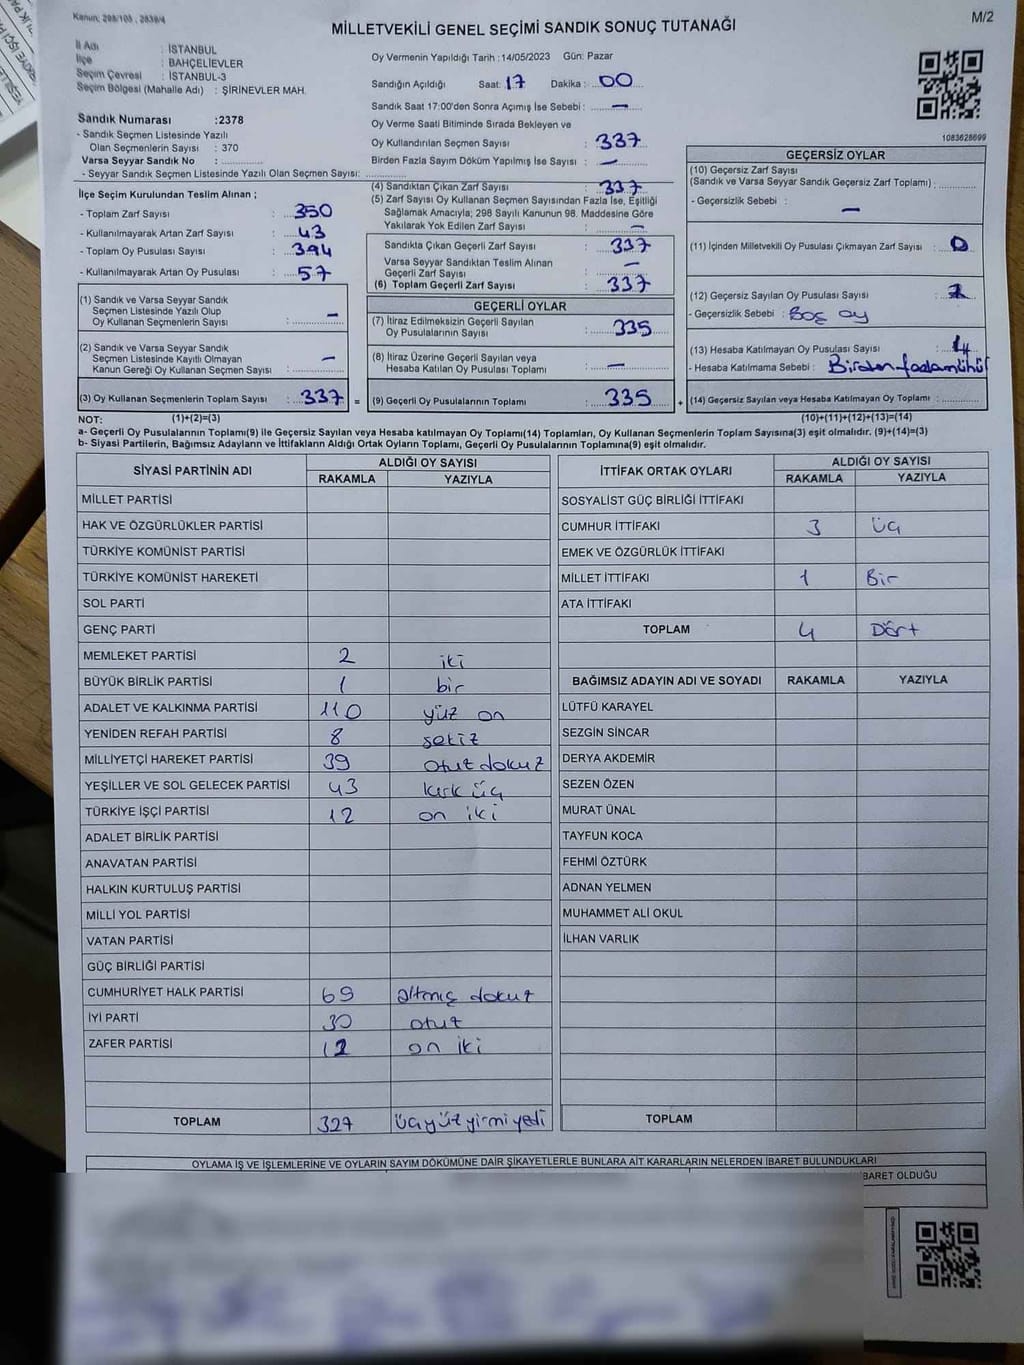 Kanun: 298/105 , 2839/4
M/2
MİLLETVEKİLİ GENEL SEÇİMİ SANDIK SONUÇ TUTANAĞI
İl Adı : İSTANBUL
İlçe : BAHÇELİEVLER
Seçim Çevresi : İSTANBUL-3
Seçim Bölgesi (Mahalle Adı) : ŞİRİNEVLER MAH.
Sandık Numarası :2378
- Sandık Seçmen Listesinde Yazılı
Olan Seçmenlerin Sayısı : 370
Varsa Seyyar Sandık No :
- Seyyar Sandık Seçmen Listesinde Yazılı Olan Seçmen Sayısı:
İlçe Seçim Kurulundan Teslim Alınan ;
- Toplam Zarf Sayısı : 350
- Kullanılmayarak Artan Zarf Sayısı : 43
- Toplam Oy Pusulası Sayısı : 394
- Kullanılmayarak Artan Oy Pusulası : 57
(1) Sandık ve Varsa Seyyar Sandık
Seçmen Listesinde Yazılı Olup
Oy Kullanan Seçmenlerin Sayısı : -
(2) Sandık ve Varsa Seyyar Sandık
Seçmen Listesinde Kayıtlı Olmayan
Kanun Gereği Oy Kullanan Seçmen Sayısı : -
(3) Oy Kullanan Seçmenlerin Toplam Sayısı : 337 =
Oy Vermenin Yapıldığı Tarih :14/05/2023 Gün: Pazar
Sandığın Açıldığı Saat: 17 Dakika : 00
Sandık Saat 17:00'den Sonra Açımış İse Sebebi : -
Oy Verme Saati Bitiminde Sırada Bekleyen ve
Oy Kullandırılan Seçmen Sayısı : 337
Birden Fazla Sayım Döküm Yapılmış İse Sayısı : -
(4) Sandıktan Çıkan Zarf Sayısı : 337
(5) Zarf Sayısı Oy Kullanan Seçmen Sayısından Fazla İse, Eşitliği
Sağlamak Amacıyla; 298 Sayılı Kanunun 98. Maddesine Göre
Yakılarak Yok Edilen Zarf Sayısı : -
Sandıkta Çıkan Geçerli Zarf Sayısı : 337
Varsa Seyyar Sandıktan Teslim Alınan
Geçerli Zarf Sayısı : -
(6) Toplam Geçerli Zarf Sayısı : 337
GEÇERLİ OYLAR
(7) İtiraz Edilmeksizin Geçerli Sayılan
Oy Pusulalarının Sayısı : 335
(8) İtiraz Üzerine Geçerli Sayılan veya
Hesaba Katılan Oy Pusulası Toplamı : -
(9) Geçerli Oy Pusulalarının Toplamı : 335 +
1083628699
GEÇERSİZ OYLAR
(10) Geçersiz Zarf Sayısı
(Sandık ve Varsa Seyyar Sandık Geçersiz Zarf Toplamı) :
- Geçersizlik Sebebi : -
(11) İçinden Milletvekili Oy Pusulası Çıkmayan Zarf Sayısı : 0
(12) Geçersiz Sayılan Oy Pusulası Sayısı :
- Geçersizlik Sebebi : Boş oy
(13) Hesaba Katılmayan Oy Pusulası Sayısı :
- Hesaba Katılmama Sebebi : Birden fazla mühür
(14) Geçersiz Sayılan veya Hesaba Katılmayan Oy Toplamı :
NOT: (1)+(2)=(3) (10)+(11)+(12)+(13)=(14)
a- Geçerli Oy Pusulalarının Toplamı(9) ile Geçersiz Sayılan veya Hesaba katılmayan Oy Toplamı(14) Toplamları, Oy Kullanan Seçmenlerin Toplam Sayısına(3) eşit olmalıdır. (9)+(14)=(3)
b- Siyasi Partilerin, Bağımsız Adayların ve İttifakların Aldığı Ortak Oyların Toplamı, Geçerli Oy Pusulalarının Toplamına(9) eşit olmalıdır.
SİYASİ PARTİNİN ADI ALDIĞI OY SAYISI
RAKAMLA YAZIYLA
MİLLET PARTİSİ
HAK VE ÖZGÜRLÜKLER PARTİSİ
TÜRKİYE KOMÜNİST PARTİSİ
TÜRKİYE KOMÜNİST HAREKETİ
SOL PARTİ
GENÇ PARTİ
MEMLEKET PARTİSİ 2 iki
BÜYÜK BİRLİK PARTİSİ 1 bir
ADALET VE KALKINMA PARTİSİ 110 yüz on
YENİDEN REFAH PARTİSİ 8 sekiz
MİLLİYETÇİ HAREKET PARTİSİ 39 otuz dokuz
YEŞİLLER VE SOL GELECEK PARTİSİ 43 kırk üç
TÜRKİYE İŞÇİ PARTİSİ 12 on iki
ADALET BİRLİK PARTİSİ
ANAVATAN PARTİSİ
HALKIN KURTULUŞ PARTİSİ
MİLLİ YOL PARTİSİ
VATAN PARTİSİ
GÜÇ BİRLİĞİ PARTİSİ
CUMHURİYET HALK PARTİSİ 69 altmış dokuz
İYİ PARTİ 30 otuz
ZAFER PARTİSİ 12 on iki
TOPLAM 327 üçyüzyirmiyedi
İTTİFAK ORTAK OYLARI ALDIĞI OY SAYISI
RAKAMLA YAZIYLA
SOSYALİST GÜÇ BİRLİĞİ İTTİFAKI
CUMHUR İTTİFAKI 3 üç
EMEK VE ÖZGÜRLÜK İTTİFAKI
MİLLET İTTİFAKI 1 Bir
ATA İTTİFAKI
TOPLAM 4 Dört
BAĞIMSIZ ADAYIN ADI VE SOYADI RAKAMLA YAZIYLA
LÜTFÜ KARAYEL
SEZGİN SİNCAR
DERYA AKDEMİR
SEZEN ÖZEN
MURAT ÜNAL
TAYFUN KOCA
FEHMİ ÖZTÜRK
ADNAN YELMEN
MUHAMMET ALİ OKUL
İLHAN VARLIK
TOPLAM
OYLAMA İŞ VE İŞLEMLERİNE VE OYLARIN SAYIM DÖKÜMÜNE DAİR ŞİKAYETLERLE BUNLARA AİT KARARLARIN NELERDEN İBARET BULUNDUKLARI
BARET OLDUĞU